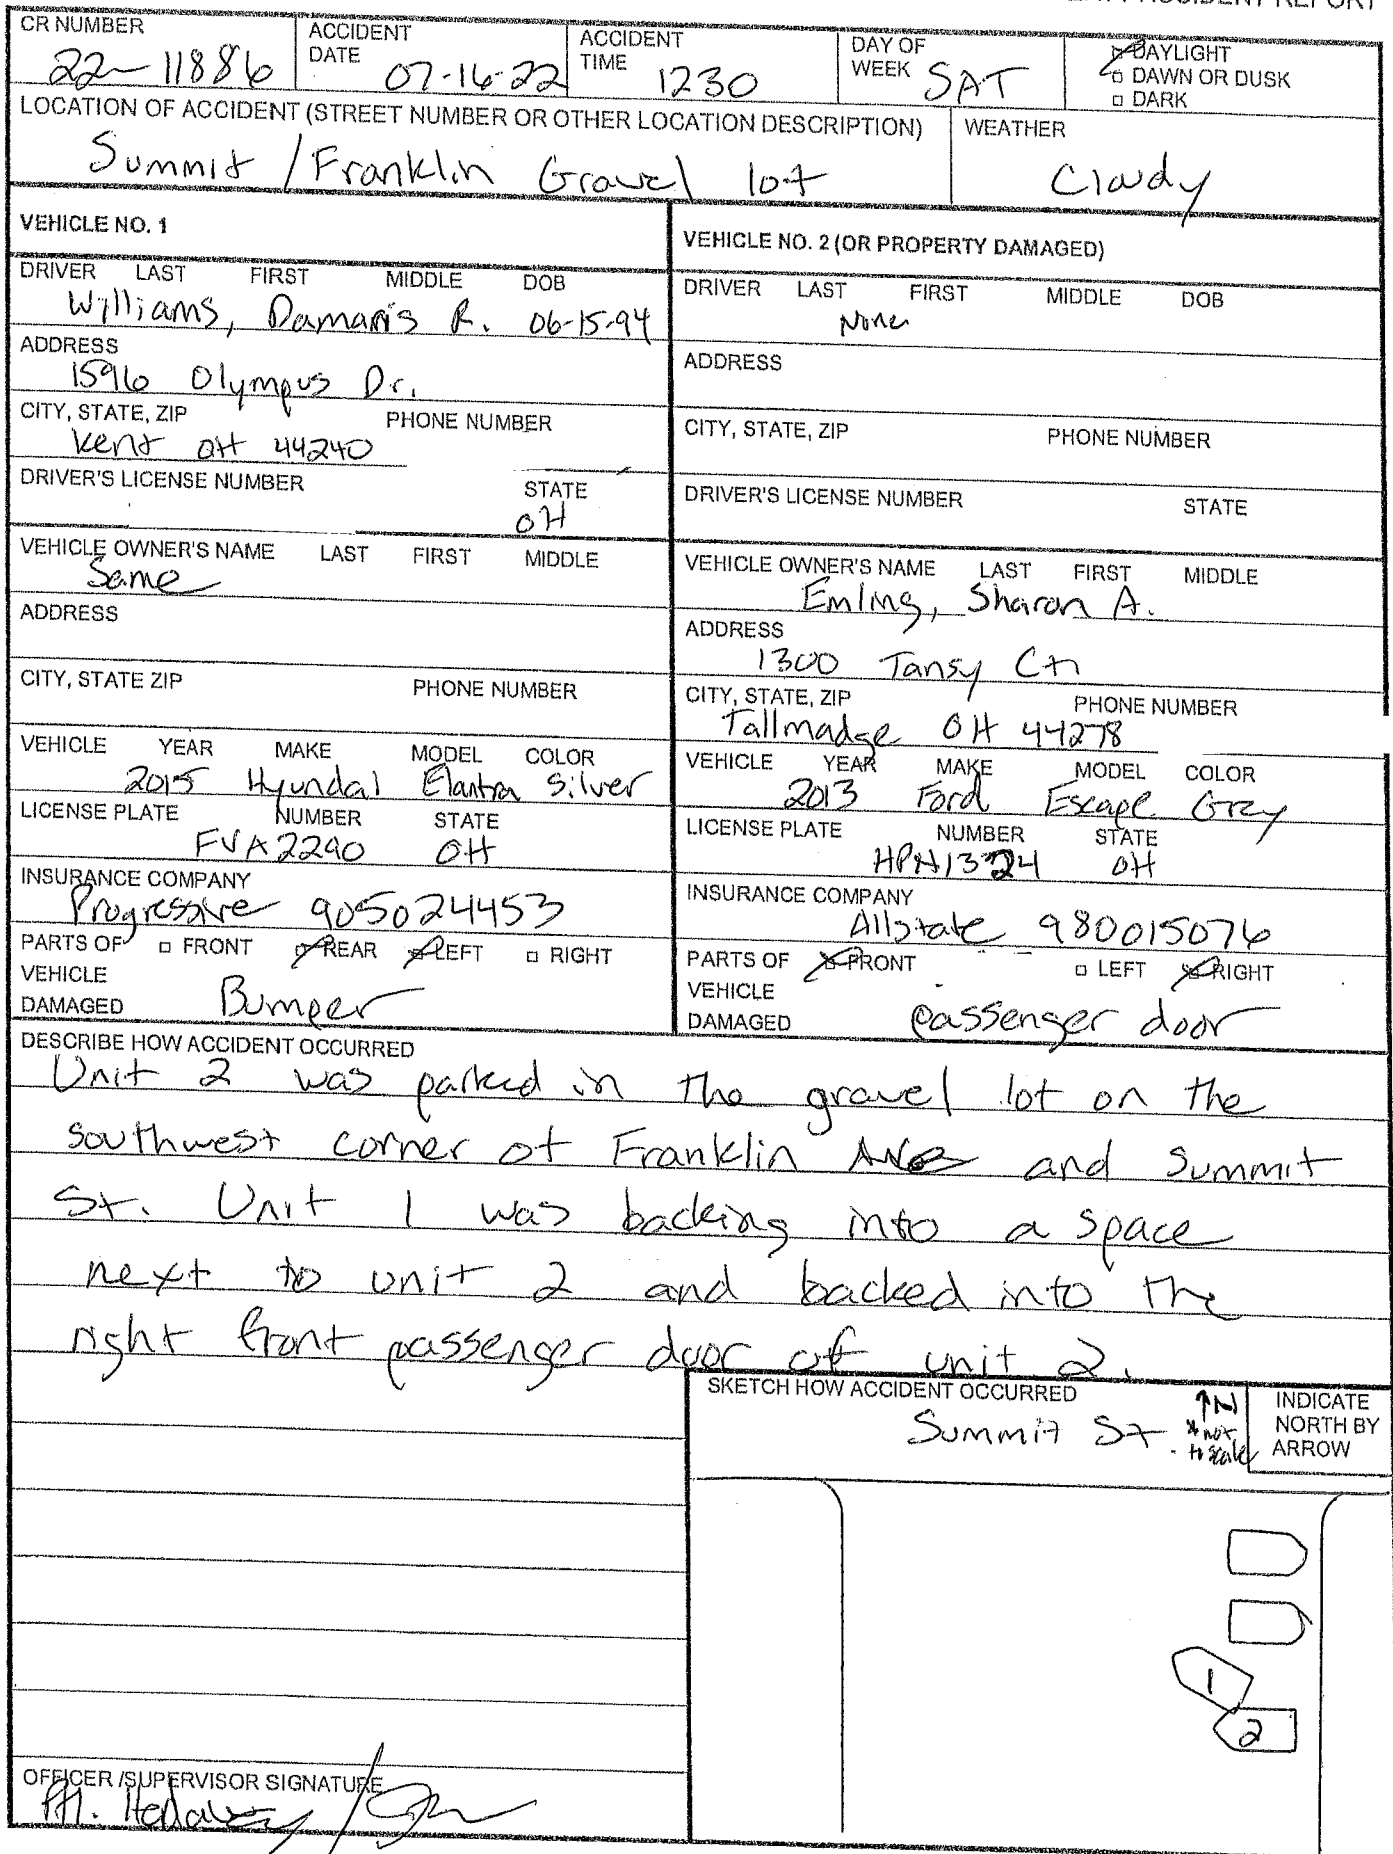 ACCIDENT REPORT
CR NUMBER ACCIDENT DATE ACCIDENT TIME DAY OF WEEK DAYLIGHT
22-11886 07-16-22 1230 SAT DAWN OR DUSK
DARK
LOCATION OF ACCIDENT (STREET NUMBER OR OTHER LOCATION DESCRIPTION) WEATHER
Summit / Franklin Gravel lot Cloudy
VEHICLE NO. 1
DRIVER LAST FIRST MIDDLE DOB
Williams, Damaris R. 06-15-94
ADDRESS
1596 Olympus Dr.
CITY, STATE, ZIP PHONE NUMBER
Kent OH 44240
DRIVER'S LICENSE NUMBER STATE
OH
VEHICLE OWNER'S NAME LAST FIRST MIDDLE
Same
ADDRESS
CITY, STATE ZIP PHONE NUMBER
VEHICLE YEAR MAKE MODEL COLOR
2015 Hyundai Elantra Silver
LICENSE PLATE NUMBER STATE
FVA2290 OH
INSURANCE COMPANY
Progressive 905024453
PARTS OF VEHICLE DAMAGED FRONT REAR LEFT RIGHT
Bumper
VEHICLE NO. 2 (OR PROPERTY DAMAGED)
DRIVER LAST FIRST MIDDLE DOB
None
ADDRESS
CITY, STATE, ZIP PHONE NUMBER
DRIVER'S LICENSE NUMBER STATE
VEHICLE OWNER'S NAME LAST FIRST MIDDLE
Emling, Sharon A.
ADDRESS
1300 Tansy Ct
CITY, STATE, ZIP PHONE NUMBER
Tallmadge OH 44278
VEHICLE YEAR MAKE MODEL COLOR
2013 Ford Escape Grey
LICENSE PLATE NUMBER STATE
OH
INSURANCE COMPANY
Allstate 980015076
PARTS OF VEHICLE DAMAGED FRONT LEFT RIGHT
passenger door
DESCRIBE HOW ACCIDENT OCCURRED
Unit 2 was parked in the gravel lot on the
southwest corner of Franklin Ave and Summit
St. Unit 1 was backing into a space
next to unit 2 and backed into the
right front passenger door of unit 2.
SKETCH HOW ACCIDENT OCCURRED
Summit St.
↑N
* not
to scale
INDICATE
NORTH BY
ARROW
1
2
OFFICER /SUPERVISOR SIGNATURE
Ptl.